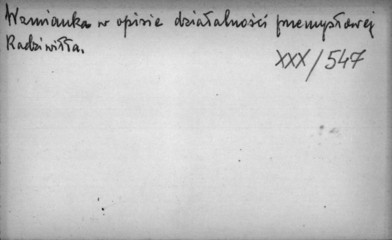 Wzmianka w opisie działalności przemysłowej
Radziwiłła.
XXX/547